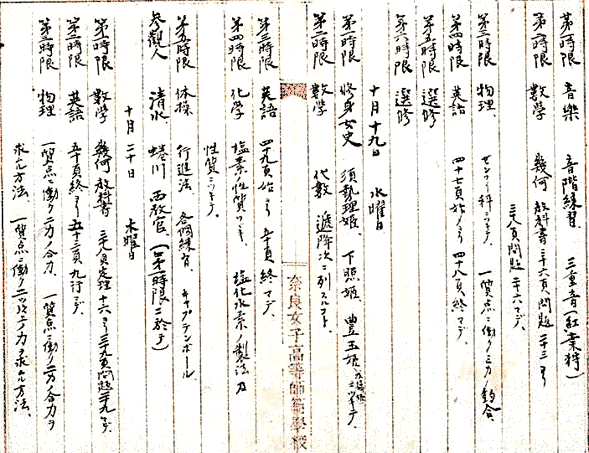 第一時限 音樂 音階練習、三重音(紅葉狩)
第二時限 數學 幾何 教科書 三十六頁問題二十三ヨリ
三八頁問題二十六マデ、
第三時限 物理、 ゼンマイ秤ニツキテ 一質点ニ働ク三力ノ釣合、
第四時限 英語 四十七頁始ヨリ 四十八頁終マデ、
第五時限 選修
第六時限 選修
十月十九日 水曜日
第一時限 修身女史 須勢理姫、下照姫、豊玉姫
第二時限 數學 代數 遞降次ニ列スルコト
第三時限 英語 四十九頁始ヨリ 五十頁終マデ
第四時限 化学 塩素ノ性質ツヾキ、 塩化水素ノ製法及
性質ニツキテ、
第五時限 体操 行進法、各個練習、キャプテンボール
参観人 清水 蜷川 両教官(第一時限ニ於テ)
十月二十日 木曜日
第一時限 數学 幾何 教科書 三八頁定理十六ヨリ三十九頁問題二十九マデ、
第二時限 英語 五十頁終ヨリ五十三頁九行マデ、
第三時限 物理 一質点ニ働ク二力ノ合力、一質点ニ働ク二力ノ合力ヲ
求ムル方法、一質点ニ働ク二ツ以上ノ力ヲ求ムル方法、
奈良女子高等師範學校